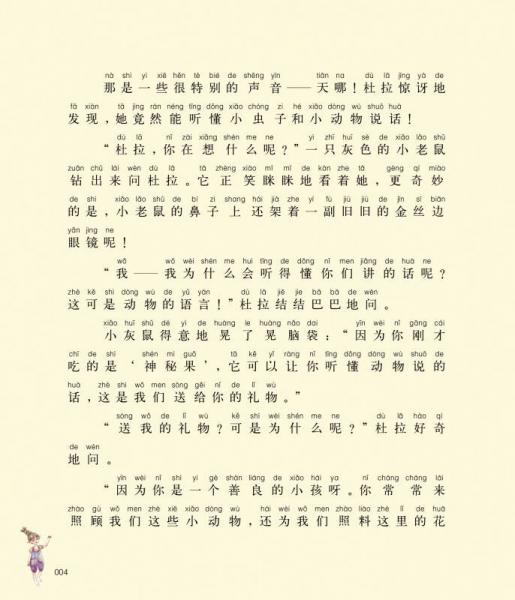 nà shì yì xiē hěn tè bié de shēng yīn tiān na dù lā jīng yà de
那是一些很特别的声音——天哪！杜拉惊讶地
fā xiàn tā jìng rán néng tīng dǒng xiǎo chóng zi hé xiǎo dòng wù shuō huà
发现，她竟然能听懂小虫子和小动物说话！
dù lā nǐ zài xiǎng shén me ne yì zhī huī sè de xiǎo lǎo shǔ
“杜拉，你在想什么呢？”一只灰色的小老鼠
zuān chū lái wèn dù lā tā zhèng xiào mī mī de kàn zhe tā gèng qí miào
钻出来问杜拉。它正笑眯眯地看着她，更奇妙
de shì xiǎo lǎo shǔ de bí zi shang hái jià zhe yí fù jiù jiù de jīn sī biān
的是，小老鼠的鼻子上还架着一副旧旧的金丝边
yǎn jìng ne
眼镜呢！
wǒ wǒ wèi shén me huì tīng de dǒng nǐ men jiǎng de huà ne
“我——我为什么会听得懂你们讲的话呢？
zhè kě shì dòng wù de yǔ yán dù lā jiē jiē bā bā de wèn
这可是动物的语言！”杜拉结结巴巴地问。
xiǎo huī shǔ dé yì de huàng le huàng nǎo dai yīn wèi nǐ gāng cái
小灰鼠得意地晃了晃脑袋：“因为你刚才
chī de shì shén mì guǒ tā kě yǐ ràng nǐ tīng dǒng dòng wù shuō de
吃的是‘神秘果’，它可以让你听懂动物说的
huà zhè shì wǒ men sòng gěi nǐ de lǐ wù
话，这是我们送给你的礼物。”
sòng wǒ de lǐ wù kě shì wèi shén me ne dù lā hào qí
“送我的礼物？可是为什么呢？”杜拉好奇
de wèn
地问。
yīn wèi nǐ shì yí gè shàn liáng de xiǎo hái ya nǐ cháng cháng lái
“因为你是一个善良的小孩呀。你常常来
zhào gù wǒ men zhè xiē xiǎo dòng wù hái wèi wǒ men zhào liào zhè lǐ de huā
照顾我们这些小动物，还为我们照料这里的花
004